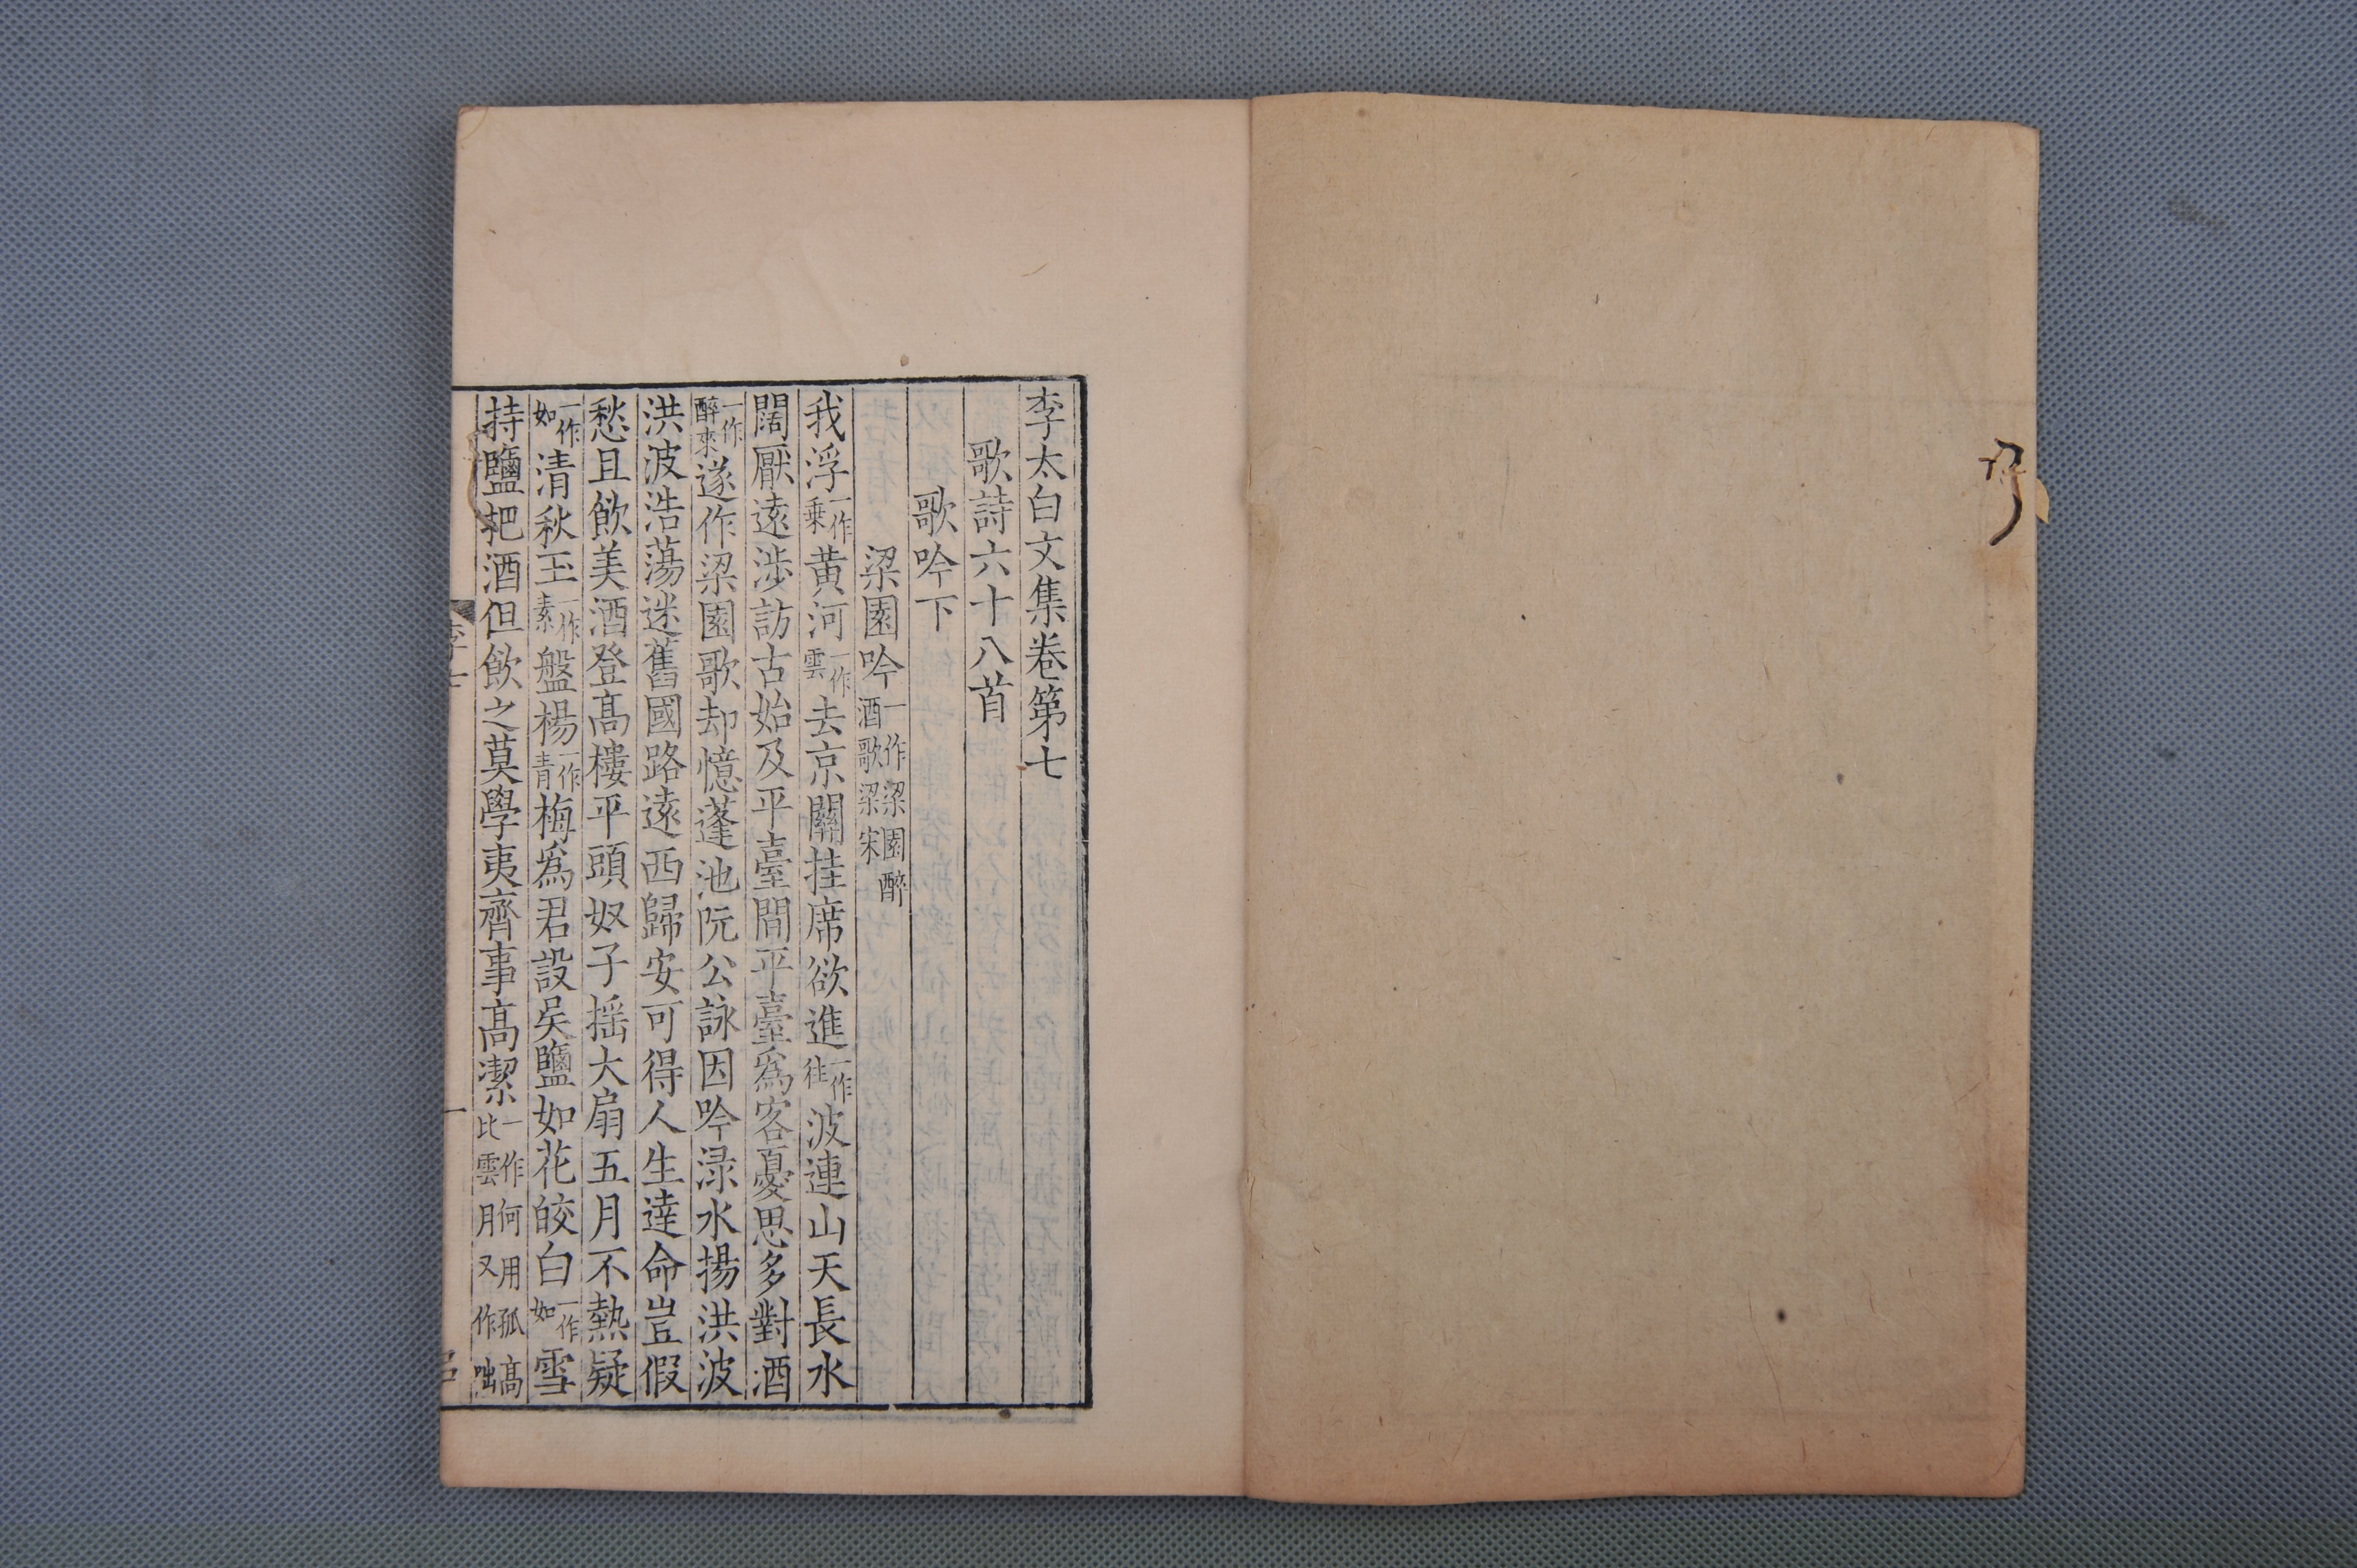 李太白文集卷第七
歌詩六十八首
歌吟下
梁園吟一作梁園醉酒歌梁宋
我浮一作乗黄河一作雲去京關挂席欲進一作往波連山天長水
闊厭遠渉訪古始及平臺間平臺爲客憂思多對酒
一作醉來遂作梁園歌却憶蓬池阮公詠因吟渌水揚洪波
洪波浩蕩迷舊國路遠西歸安可得人生達命豈假
愁且飲美酒登髙樓平頭奴子揺大扇五月不熱疑
一作如清秋玉一作素盤楊一作青梅爲君設吴鹽如花皎白一作如雪
持鹽把酒但飲之莫學夷齊事髙潔一作何用孤髙比雲月又作咄
李七
一